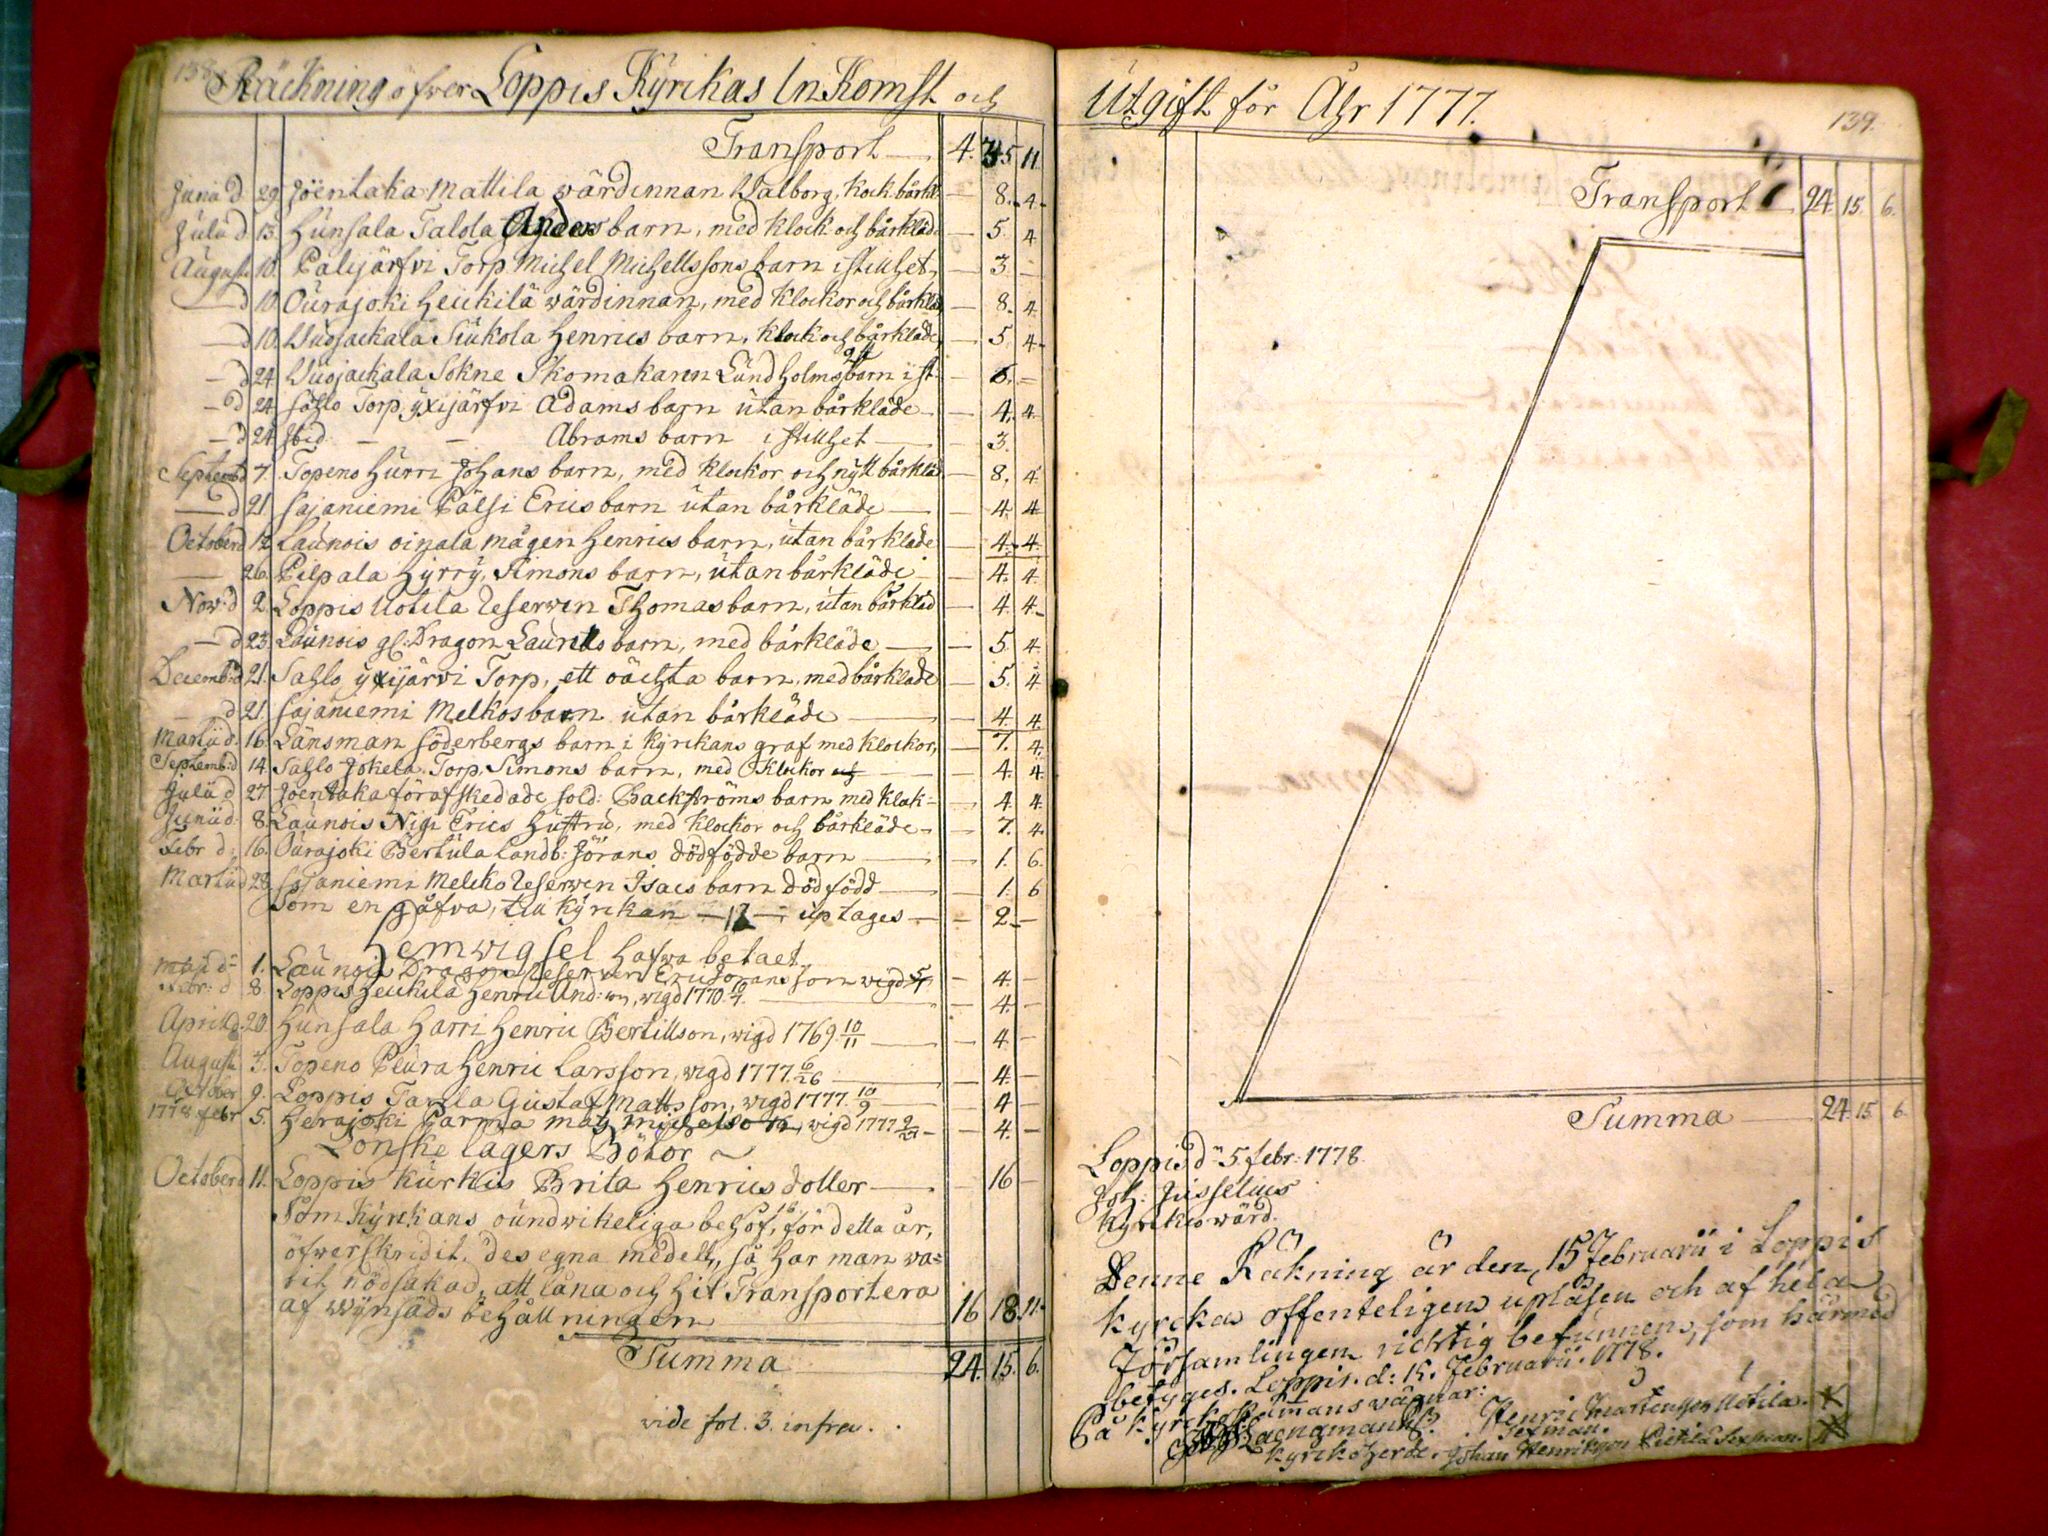 138.
Räckning öfwer Loppis Kyrikas InKomst och
Transport — 4. 5 11.
29. Jöentaka Mattila wärdinnan Walborg, kock. bårkl. — 8. 4.
Julii d 13. Hunsala Talola barn, med klock och bårkläd — 5. 4
August 10. Palijärfvi Torp Michel Michellssons barn i stillhet, — 3. —
— d 10. Ourajoki Heikilä wärdinnan, med klockor och bårkläd — 8. 4.
— d 10. Wuojackala Siukola Henrics barn, klock och bårkläde — 5. 4.
— d 24. Wuojackala Sokne Skomakaren Lundholms barn i st: — —
— d 24. Sahlo Torp yxijärfvi Adams barn utan bårkläde — 4. 4.
— d 24. Ibid. — — Abrams barn i stillhet — 3.
Septemb d 7. Topeno Hurri Johans barn, med klockor och nytt bårkläd — 8. 4.
— d 21. Sajaniemi Pälsi Erics barn utan bårkläde — 4. 4
October d Launois oinala mågen Henrics barn, utan bårklade — 4. 4.
— 26. Pilpala Hyrry, Simons barn, utan bårkläde — 4. 4.
Nov: d 2. Loppis Uotila Reserven Thomas barn, utan bårkläd — 4. 4.
— d 23. Launois gl: Dragon barn, med bårkläde — 5. 4.
Decemb: d 21. Sahlo yxijärvi Torp, ett oächta barn, med bårklade — 5. 4.
d 21. Sajaniemi Melkos barn utan bårkläde — 4. 4.
Martii d. 16. Länsman Söderbergs barn i kyrckans graf med klockor, — 7. 4.
Septemb: d 14. Sahlo Jokela Torp, Simons barn, med klockor och — 4. 4.
Julii d 27. Jöentaka förafskedade sold: Backströms barn med klock- — 4. 4.
Junii d. 8. Launois Erics Hustru, med klockor och bårkläde — 7. 4.
Febr d: 16. Ourajoki Bertula Landb: Jörans dödfödde barn — 1. 6.
Martii d 28. Sajaniemi Melcko Reserven Isacs barn dödfödd — 1. 6
Som en gåfva, till kyrkan — uptages — 2. —
Hemwigsel hafwa betalt
Maji d 1. Launois Dragon Reserven wigd — 4. —
Febr: d 8. Loppis Heickilä Henric And:son, wigd 1770. — 4. —
April d. 20. Hunsala Harri Henric Bertillson, wigd 1769. 10/11 — 4. —
August. 3. Topeno Peura Henric Larsson, wigd 1777. 6/26 — 4. —
October 9. Loppis Tarila Gustaf Mattsson, wigd 1777. 10/9 — 4. —
1778 febr 5. Herajoki Parma wigd 1777. — 4. —
Lönskelägers Böter
October d 11. Loppis Kurkis Brita Henrics dotter — 16 —
Som kyrckans oundwikeliga behof, för detta år,
öfwerskridit, des egna medell, så har man wa=
rit nödsakad, att låna och hit Transportera
af Wynsäds behållningen — 16 18. 11.
Summa — 24. 15. 6.
vide fol. 3. infra.
Utgift för Åhr 1777.
139.
Transport — 24. 15. 6.
Summa — 24. 15. 6
Loppis d 5 febr: 1778.
Joh: Gisselius
kyrckiowärd.
Denne Räkning är den 15 Februarii i Loppis
kyrcka offenteligen upläsen och af hela
Församlingen richtig befunnen, som härmed
betyges. Loppis. d: 15. Februarii. 1778.
På kyrckioherdens wägnar:
Henric Mårtensson Uotila. X
Sexman.
kyrckoherde. Johan Henriksson Pietilä Sexman.